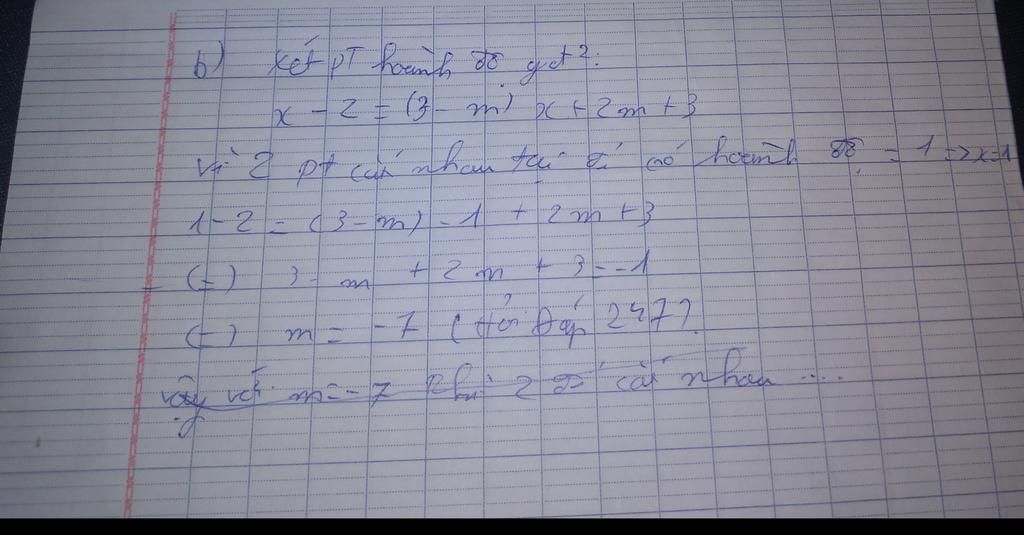 b) Xét pt hoành độ gđ:
x - 2 = (3 - m) x + 2m + 3
vì 2 pt cắt nhau tại có hoành độ = 1 => x=1
1 - 2 = (3 - m) . 1 + 2m + 3
(=) 3 - m + 2m + 3 = -1
(=) m = -7 (Hỏi Đáp 247)
vậy với m = -7 thì 2 cắt nhau ....